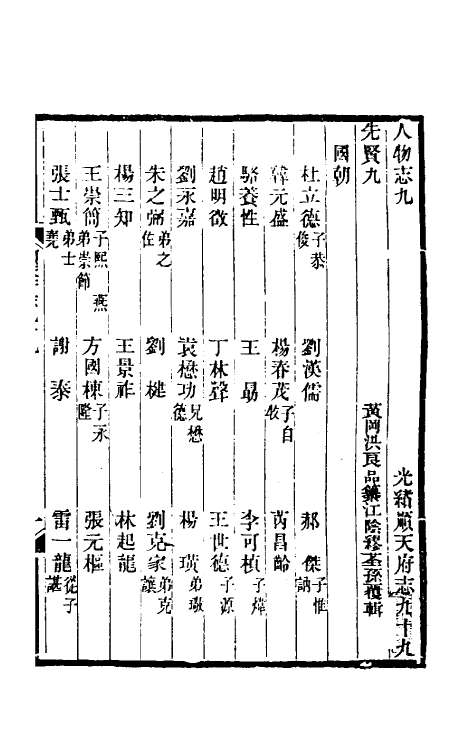 人物志九　光緒順天府志九十九
先賢九　黃岡洪良品纂江陰繆荃孫覆輯
國朝
杜立德子恭俊　劉漢儒　郝傑子惟訥
韓元盛　楊春茂子自牧　芮昌齡
駱養性　王勗　李可楨子煒
趙明徵　丁林聲　王世德子源
劉永嘉　袁懋功兄懋德　楊璜弟璥
朱之弼弟之佐　劉楗　劉克家弟克讓
楊三知　王景祚　林起龍
王崇簡子熙 燕 弟崇節　方國棟子永隆　張元樞
張士甄弟士　謝泰　雷一龍從子諶